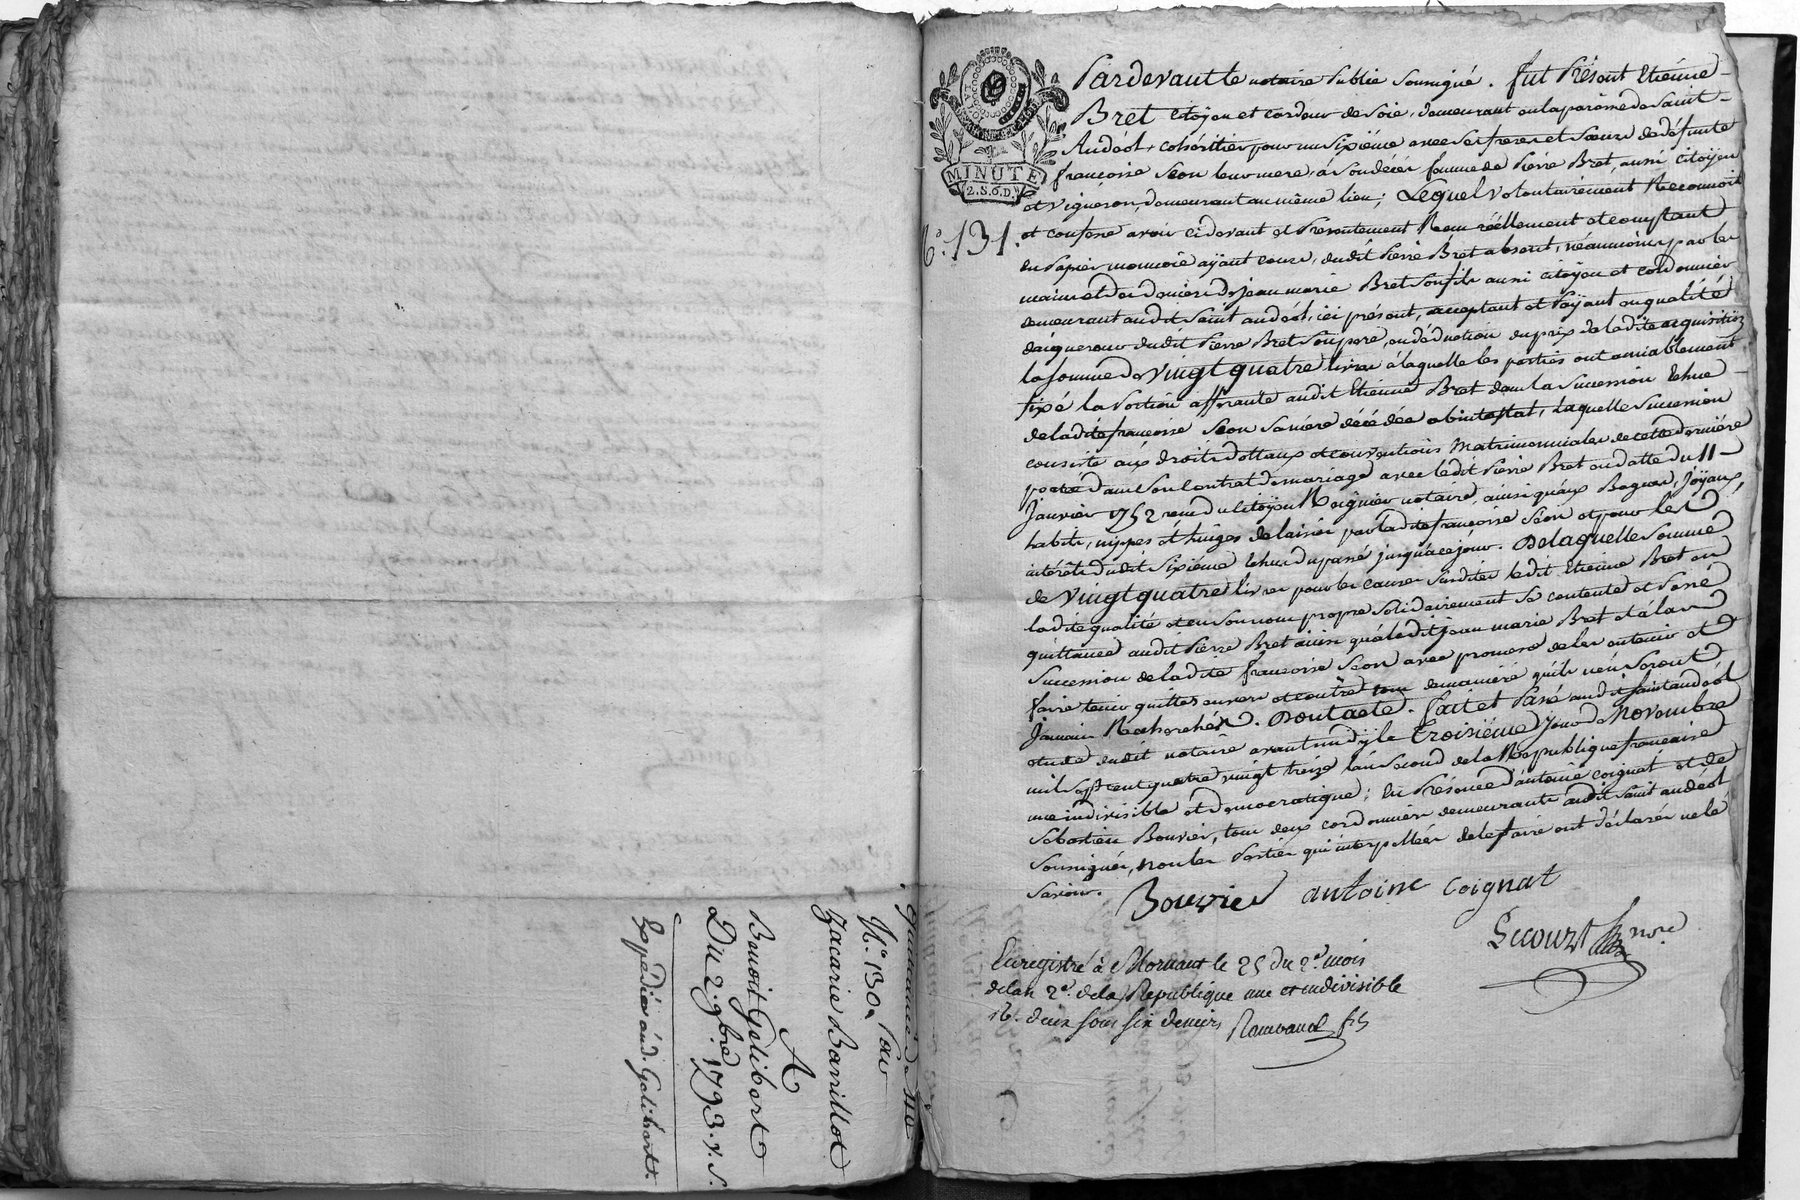 Quittance de 110
N.o 130. Par
Zacarie Barrillot
A
Benoit Gelibert
Du 2. 9bre. 1793. v. s.
Expédiée aud. Gelibert.
MINUTE
2.S.6.D.rs
N.o 131.
Pardevant le notaire Public soussigné. fut Présent Etiénne
Bret citoÿen et cardeur de soie, demeurant en la paroisse de Saint
Andéol, cohéritier pour un sixiéme avec ses freres et sœurs de défunte
françoise Séon leur mere, à son décès femme de Pierre Bret, aussi citoÿen
et vigneron, demeurant au même lieu; Lequel volontairement Reconnoit
et confesse avoir cidevant et Presentement Reçu réellement et comptant
en Papier monnoié aÿant cours, dudit Pierre Bret absent, néanmoins par les
mains et des deniers de jean marie Bret son fils aussi citoÿen et cordonnier
demeurant audit Saint andéol, ici présent, acceptant et Païant en qualité
d'aquereur dudit Pierre Bret son pere, en déduction du prix de ladite acquisition
la somme de vingt quatre livres à laquelle les parties ont amiablement
fixé la Portion afferante audit Etienne Bret dans la Succession Echue
de ladite françoise Séon sa mère décédée abintestat, Laquelle Succession
consiste aux droits dottaux et conventions Matrimonniales de cette derniére
portés dans son Contrat de mariage avec ledit Pierre Bret en datte du 11
Janvier 1752 reçu du citoÿen Reignier notaire, ainsi qu'aux Bagues, Joÿaux,
habits, nippes et linges delaissés par ladite françoise Séon et pour les
intérêts dudit Sixiéme Echus du passé jusqu'à ce jour. De laquelle Somme
de vingt quatre livres pour les causes Susdites ledit Etienne Bret en
ladite qualité et en son nom propre solidairement se contente et Passe
quittance audit Pierre Bret ainsi qu'àledit jean marie Bret et à la
Succession de ladite françoise Séon avec promesse de les en tenir et
faire tenir quittes envers et contre tous de maniére qu'ils n'en soront
Jamais Recherchés. Dont acte. fait et Passé audit Saint andéol
étude dudit notaire avant midÿ le troisiéme jour de Novembre
mil sept cent quatre vingt treize l'an Second de la République françaisé
une indivisible et démocratique; En Présence d'antoine coignat et de
Sébastien Bouvier, tous deux cordonniers demeurants audit Saint andéol
Soussignés, non les Parties qui interpellées de le faire ont déclaré ne le
savoir.
Bouvier antoine Coignat
Enregistré à Mornant le 25 du 2.e mois
de l'an 2.e de la Republique une et indivisible
R. deux sous six deniers